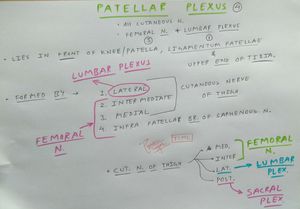 PATELLAR PLEXUS ④
• All CUTANEOUS N.
• FEMORAL N. + LUMBAR PLEXUS
③ ①
• LIES IN FRONT OF KNEE/PATELLA, LIGAMENTUM PATELLAE
& UPPER END OF TIBIA.
LUMBAR PLEXUS
• FORMED BY → 1. LATERAL
2. INTERMEDIATE
3. MEDIAL
CUTANEOUS NERVE
OF THIGH
4. INFRA PATELLAR BR. OF SAPHENOUS N.
FEMORAL
N.
• CUT. N OF THIGH
MED.
INTER
FEMORAL
N.
LAT. → LUMBAR
PLEX.
POST.
SACRAL
PLEX